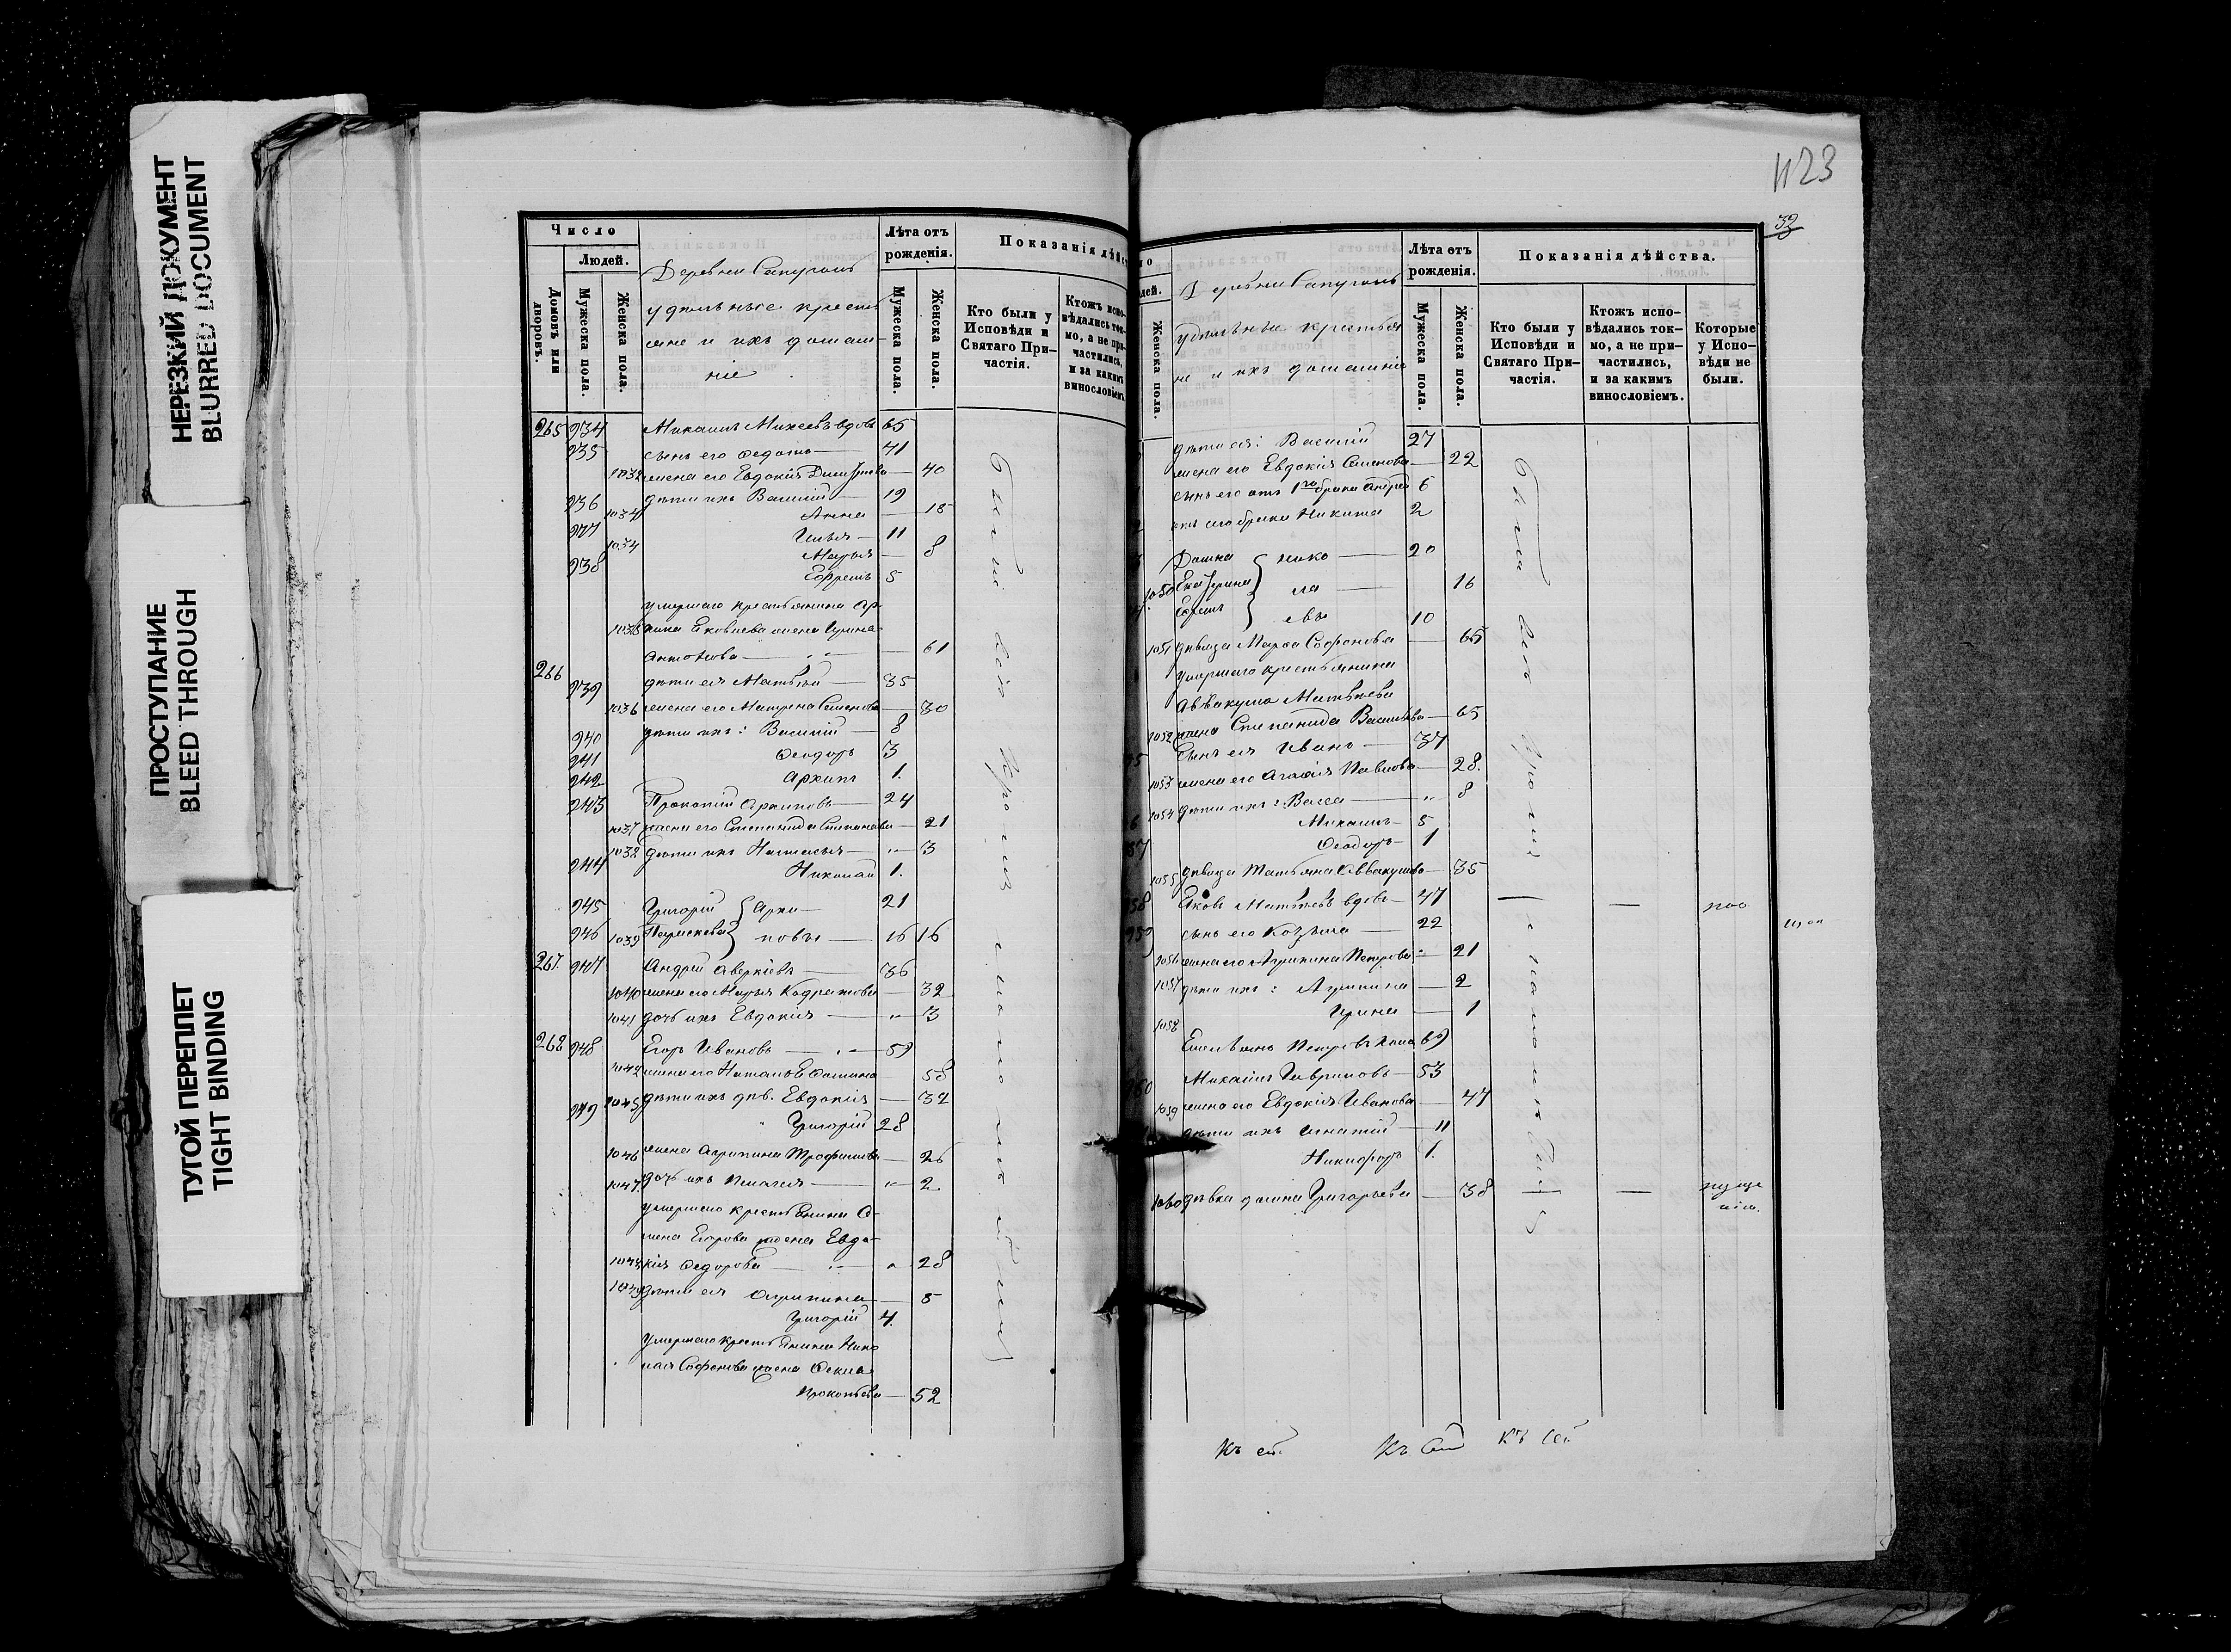 НЕРЕЗКИЙ ДОКУМЕНТ
BLURRED DOCUMENT
ПРОСТУПАНИЕ
BLEED THROUGH
ТУГОЙ ПЕРЕПЛЕТ
TIGHT BINDING
Число
Людей.
Домовъ или дворовъ.
Мужеска пола.
Женска пола.
удѣльные кресть
яне и ихъ домаш
ніе
Лѣта отъ рожденія.
Мужеска пола.
Женска пола.
Показанія дѣйс
Кто были у Исповѣди и Святаго Причастія.
Ктожъ испо-
вѣдались ток-
мо, а не при-
частились,
и за какимъ
винословіемъ
265 934 Михаилъ Михеевъ вдовъ 65
935 сынъ его Ѳедотъ 41
жена его Евдокія 40
936 дѣти ихъ Василій 19
1034 Анна 15
Илья 11
1034 Марья 8
938 Ефремъ 5
умершаго крестьянина Ар-
хипа Яковлева жена Ирина
Антонова 61
266 939 дѣти ея Матвей 35
1036 жена его Матрена Семенова 30
940 дѣти ихъ: Василій 8
941 Ѳеодоръ 3
942 Архипъ 1.
943 Прокопій Архиповъ 24
1037 жена его Степанида Степанова 21
1038 дѣти ихъ Наталья 3
944 Николай 1.
945 Григорій Архи- 21
946 1039 Парасковья повы 16 16
267. 947 Андрей Аверкіевъ 36
1040 жена его Марья 32
1041 дочь ихъ Евдокія 3
268 948 Егоръ Ивановъ 59
1042 жена его 58
дѣти ихъ дѣв. Евдокія 32
949 Григорій 28
1046 жена Агрипина Трофимова 26
1047. дочь ихъ Пелагея 2
умершаго крестьянина Се-
мена Егорова жена Евдо-
кія Ѳедорова 28
дѣти ея Агрипина 5
Григорій 4.
умершаго крестьянина Нико
лая Софонова жена Ѳекла
Прокопьева 52
были всѣ
1123
32
Женска пола.
удѣльные крестья
не и ихъ домашніе
Лѣта отъ рожденія.
Мужеска пола.
Женска пола.
Показанія дѣйства.
Кто были у Исповѣди и Святаго Причастія.
Ктожъ испо-
вѣдались ток-
мо, а не при-
частились,
и за какимъ
винословіемъ.
Которые
у Испо-
вѣди не
были.
дѣти ея: Василій 27
жена его Евдокія Семенова 22
сынъ его отъ 1го брака Андрей 6
отъ сего брака Никита 2
нико 20
1050 Екатерина ла 16
Ефремъ евы 10
1051 дѣвица Марѳа Софонова 65
умершаго крестьянина
Аввакума Матвеева
1052 жена Степанида Васильева 65
сынъ ея Иванъ 34
1053 жена его Агаѳія Павлова 28.
1054 дѣти ихъ: Васса 8
Михаилъ 5
Ѳеодоръ 1
1055 дѣвица Татьяна Аввакумова 35
Яковъ Матвеевъ вдовъ 47
сынъ его Козьма 22
1056 жена его Агрипина Петрова 21
1057 дѣти ихъ: Агрипина 2
1058 Ирина 1
Емельянъ Петровъ 69
Михаилъ Гавриловъ 53
1059 жена его Евдокія Иванова 47
дѣти ихъ Игнатій 11
Никифоръ 1.
1060 дѣвка Григорьева 38
были всѣ